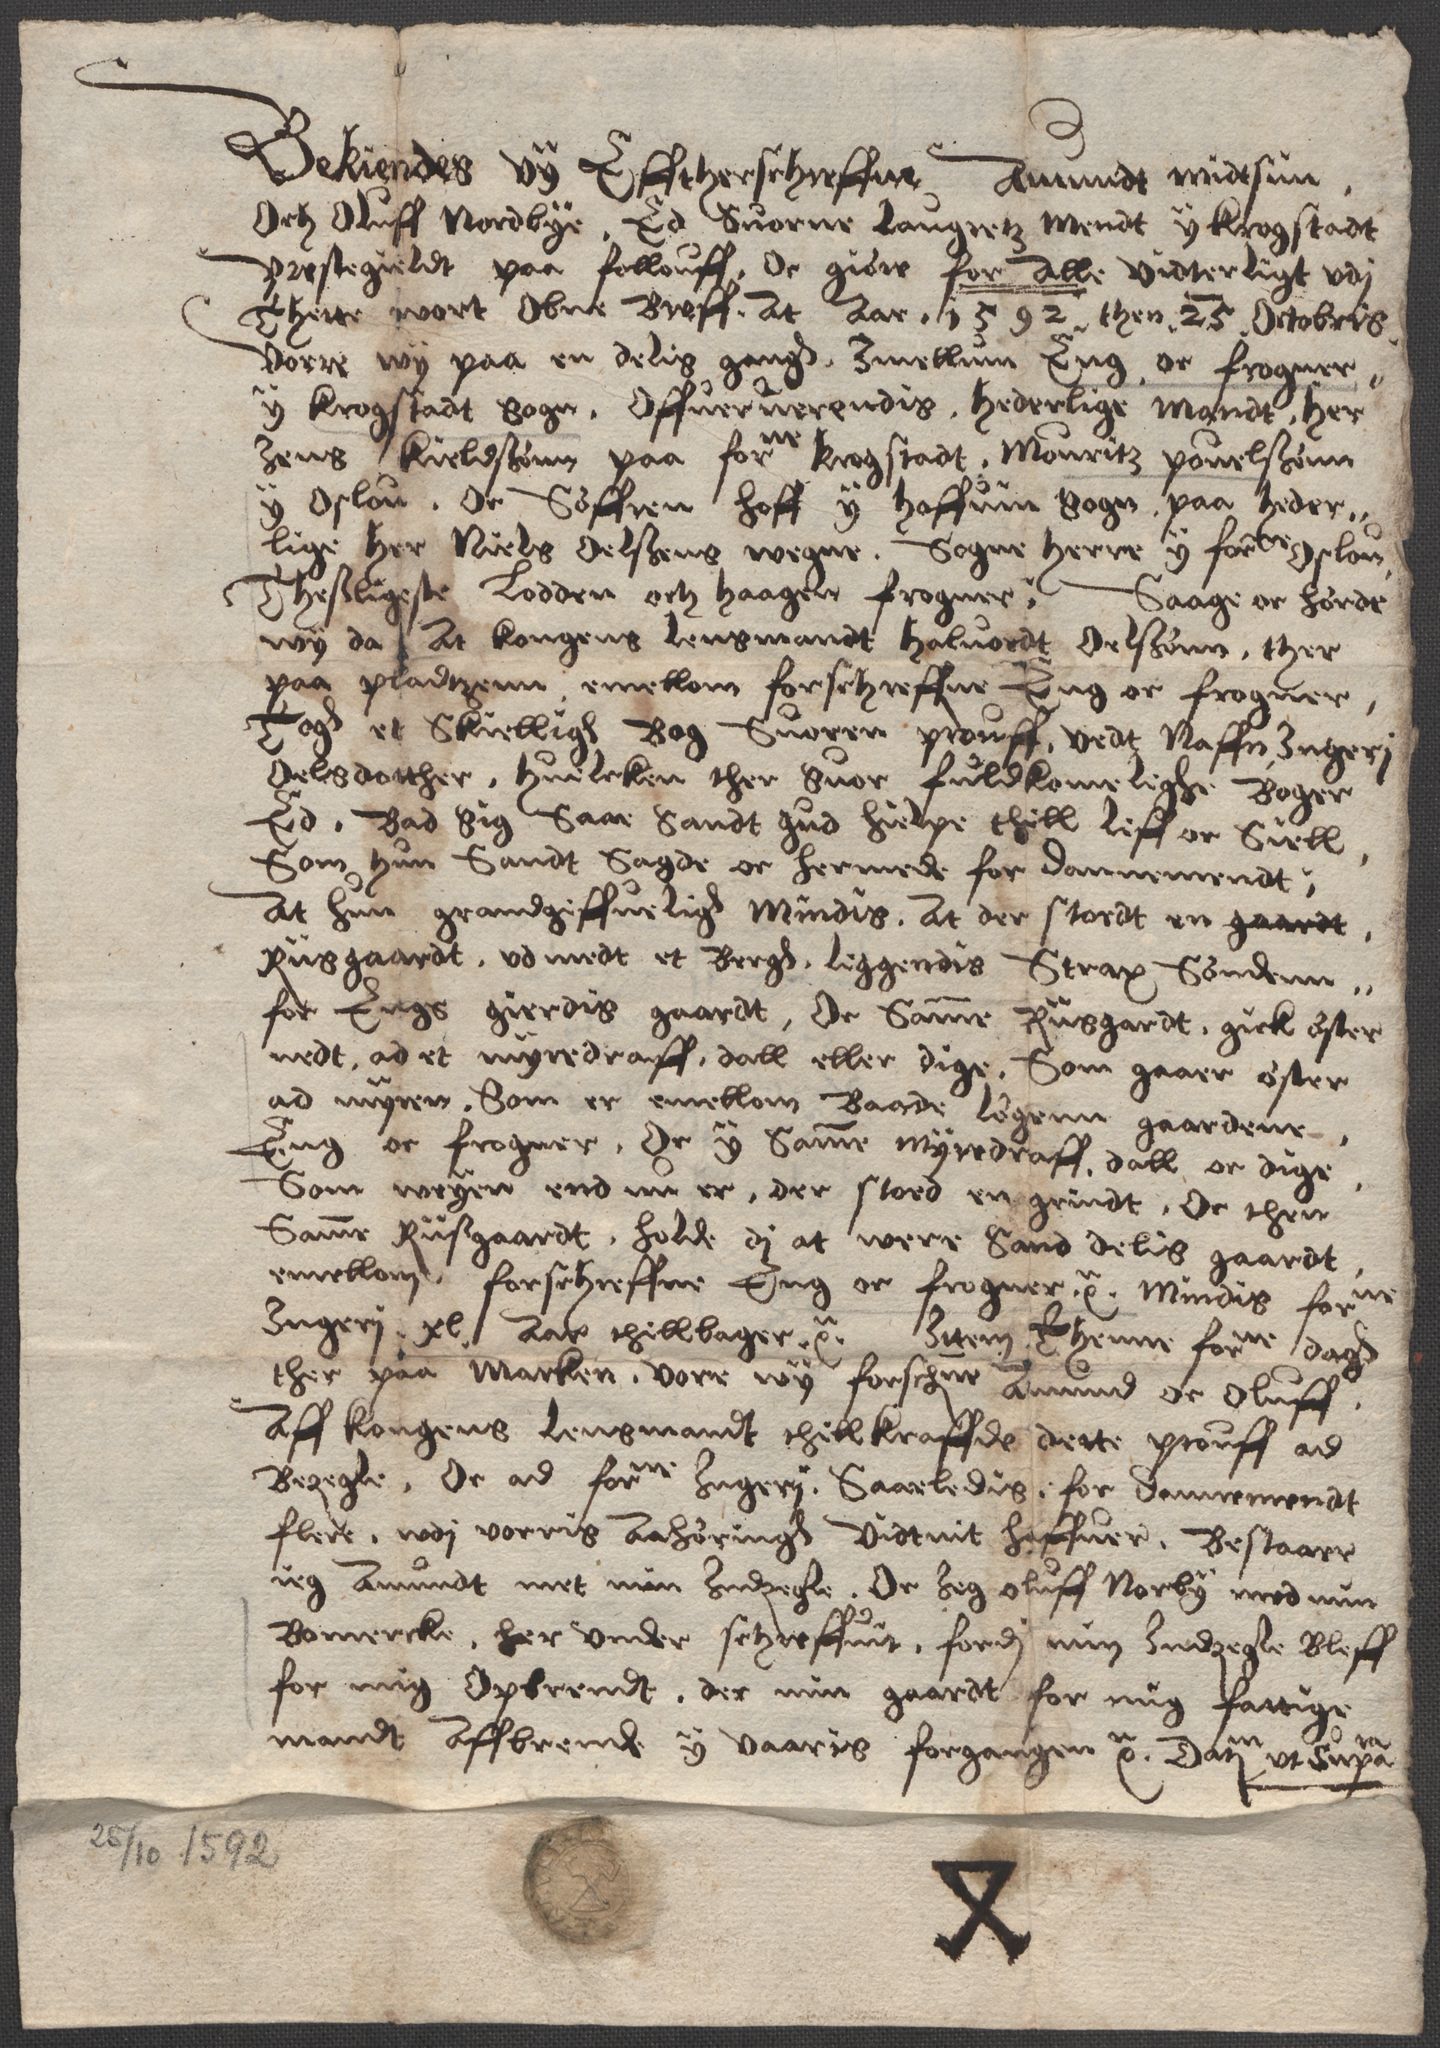 Bekiendes vÿ Effttherschreffne Amundt midtsun,
Och Oluff Nordbÿe, Ed Suorne Laugretz Mendt ÿ Krogstadt
prestegieldt paa follouff, Oc giöre for Alle vidterligt vdj
Thette wort Obne Breff. At Aar. 1592. then. 25. Octobris.
Vorre wÿ paa en delis gangh. Imellum Eng, oc frogner,
ÿ Krogstadt Sogn. Offueruerendis. hederlige Mandt, her
Jens Kieldssönn paa for:ne Krogstadt, Mouritz pouelssönn
ÿ Oslou. Oc Söffren hoff ÿ haffuin Sogn, paa heder,,
lige her Niels Oelssens wegne. Sogne herre ÿ for:ne Oslou,
Thessligeste Lodden och haagen frogner, Saage oc hörde
wÿ da At kongens lensmandt haluordt Oelssönn, ther
paa pladtzenn, emellom forschreffne Eng oc frogner,
Togh et Skielligh Bog Suoren prouff, vedt Naffn Ingerj
Oelsdotther, huelcken ther Suor fuldkomelighe Boger
Ed. Bad Sig Saae Sandt gud hielpe thill Leff oc Siell,
Som hun Sandt Sagde oc hermede for dannemendt,
At hun grandgeffueligh Mindis. At der stordt en gaardt,
Riisgaardt. vdmedt et Bergh. leggendis Strax Söndenn,,
for Engs gierdis gaardt, Oc Samme Riisgardt. gick öster
nedt, ad et myredraff, dall eller dige, Som gaaer öster
ad myren, Som er emellom Baade legenn gaardene,
Eng oc frogner, Oc ÿ Samme Myredraff, dall oc dige,
Som weÿen end nu er, der stoed en grindt, Oc then
Samme Riissgaardt, holde dj at were Sand delis gaardt,
emellom forschreffne Eng oc frogner. &. Mindis for:ne
Ingerj. xl. Aar thillbager. &. Ittem Thenne for:ne dagh
ther paa Marken, vore wÿ forschne Amund oc Oluff,
Aff kongens lensmandt thillkraffde dette prouff ad
Bezegle, Oc ad for:ne Ingerj. Saaeledis, for dannemendt
flere, wdj vorris Aahöringh Vidtnit haffuer, Bestaaer
ieg Amundt met min Indzegle, Oc Jeg oluff Norbÿ med min
Bomercke, her vnder schreffuit, fordj min Indzegle Bleff
for mig Opbrendt, der min gaardt for mig fattige
mandt Affbrende ÿ vaaris forgangen &. Datum vt Supra
25/10 1592